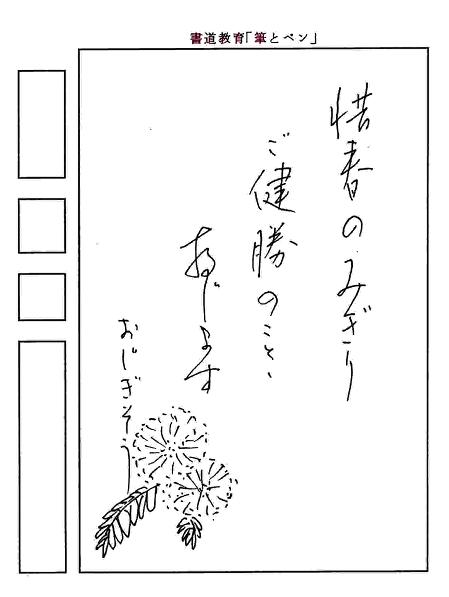 書道教育「筆とペン」
惜春のみぎり
ご健勝のこと、
存じます
おじぎそう